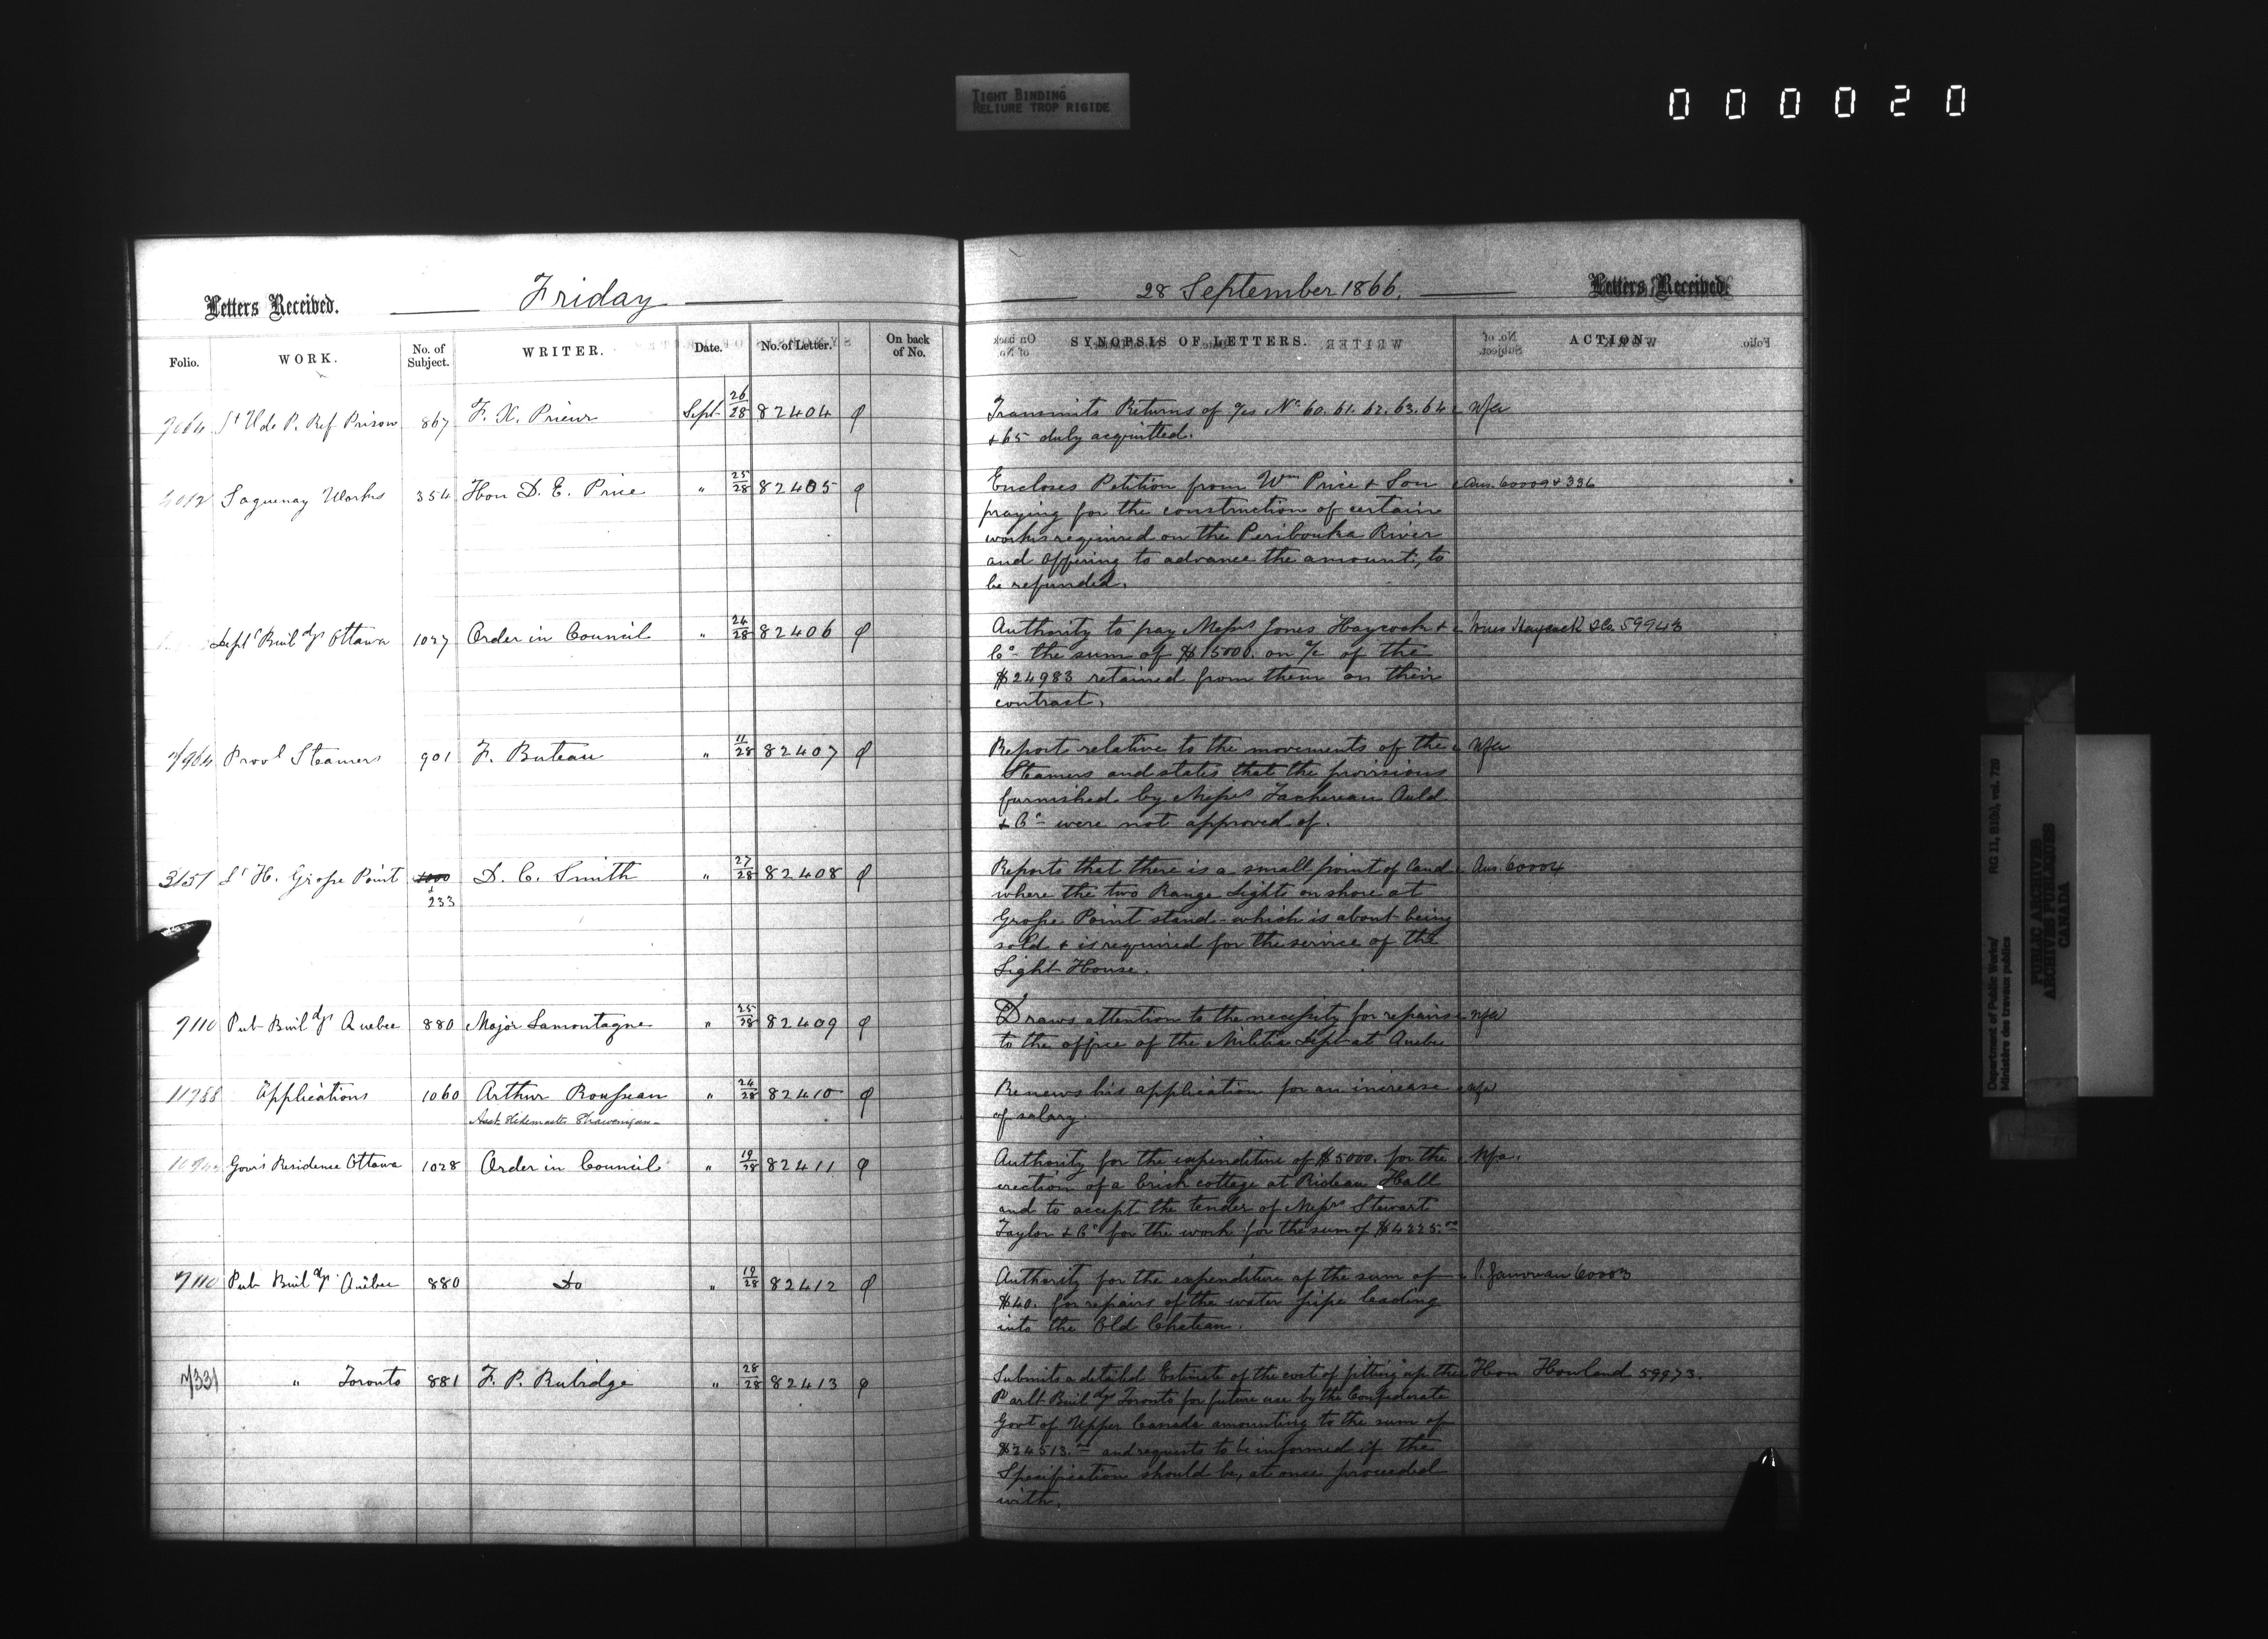 TIGHT BINDING
RELIURE TROP RIGIDE
000020
Letters Received.
Friday
Folio. WORK. No. of Subject. WRITER. Date. No. of Letter. On back of No.
St V de P. Ref Prison 867 F. X. Prieur Sept 26/28 82404
Saguenay Works 354 Hon D. E. Price " 25/28 82405
Dept l Buil dgs Ottawa 1027 Order in Council " 24/28 82406
Prov l Steamers 901 F. Buteau " 11/28 82407
3151 Lt H. Grosse Point 1000 D. C. Smith " 27/28 82408
+
233
7110 Pub Buil dgs Quebec 880 Major Lamontagne " 25/28 82409
11788 Applications 1060 Arthur Rousseau " 24/28 82410
Asst Slidemaster Shawenigan
Gov's Residence Ottawa 1028 Order in Council " 19/28 82411
7110 Pub Buil dgs Quebec 880 Do " 19/28 82412
7331 " Toronto 881 F. P. Rubidge " 28/28 82413
28 September 1866.
Letters Received
SYNOPSIS OF LETTERS. ACTION.
Transmits Returns of a/cs No 60. 61. 62. 63. 64 Nfa
+ 65 duly acquitted.
Encloses Petition from Wm Price + Son Ans. 60009 + 336
praying for the construction of certain
works required on the Peribouka River
and offering to advance the amount, to
be refunded.
Authority to pay Messrs Jones Haycock + Haycock & Co 59943
Co the sum of $15000. on a/c of the
$24983 retained from them on their
contract.
Report relative to the movements of the Nfa
Steamers and states that the provisions
furnished by Messrs Tachereau Auld
+ Co were not approved of.
Reports that there is a small point of land Ans. 60004
where the two Range Lights on shore at
Grosse Point stand - which is about being
sold + is required for the service of the
Light House.
Draws attention to the necessity for repairs Nfa
to the office of the Militia Dept at Quebec
Renews his application for an increase Nfa
of salary.
Authority for the expenditure of $5000. for the Nfa.
erection of a brick cottage at Rideau Hall
and to accept the tender of Messrs Stewart
Taylor + Co for the work for the sum of $4225.00
Authority for the expenditure of the sum of 60003
$40. for repairs of the water pipe leading
into the Old Chateau.
Submits a detailed Estimate of the cost of fitting up the Hon Howland 59973.
Parlt Buil dgs Toronto for future use by the Confederate
Govt of Upper Canada amounting to the sum of
$24513.00 and requests to be informed if the
Specification should be, at once proceeded
with.
Department of Public Works/ RG 11, B1(b), vol. 720
Ministère des travaux publics
PUBLIC ARCHIVES
ARCHIVES PUBLIQUES
CANADA